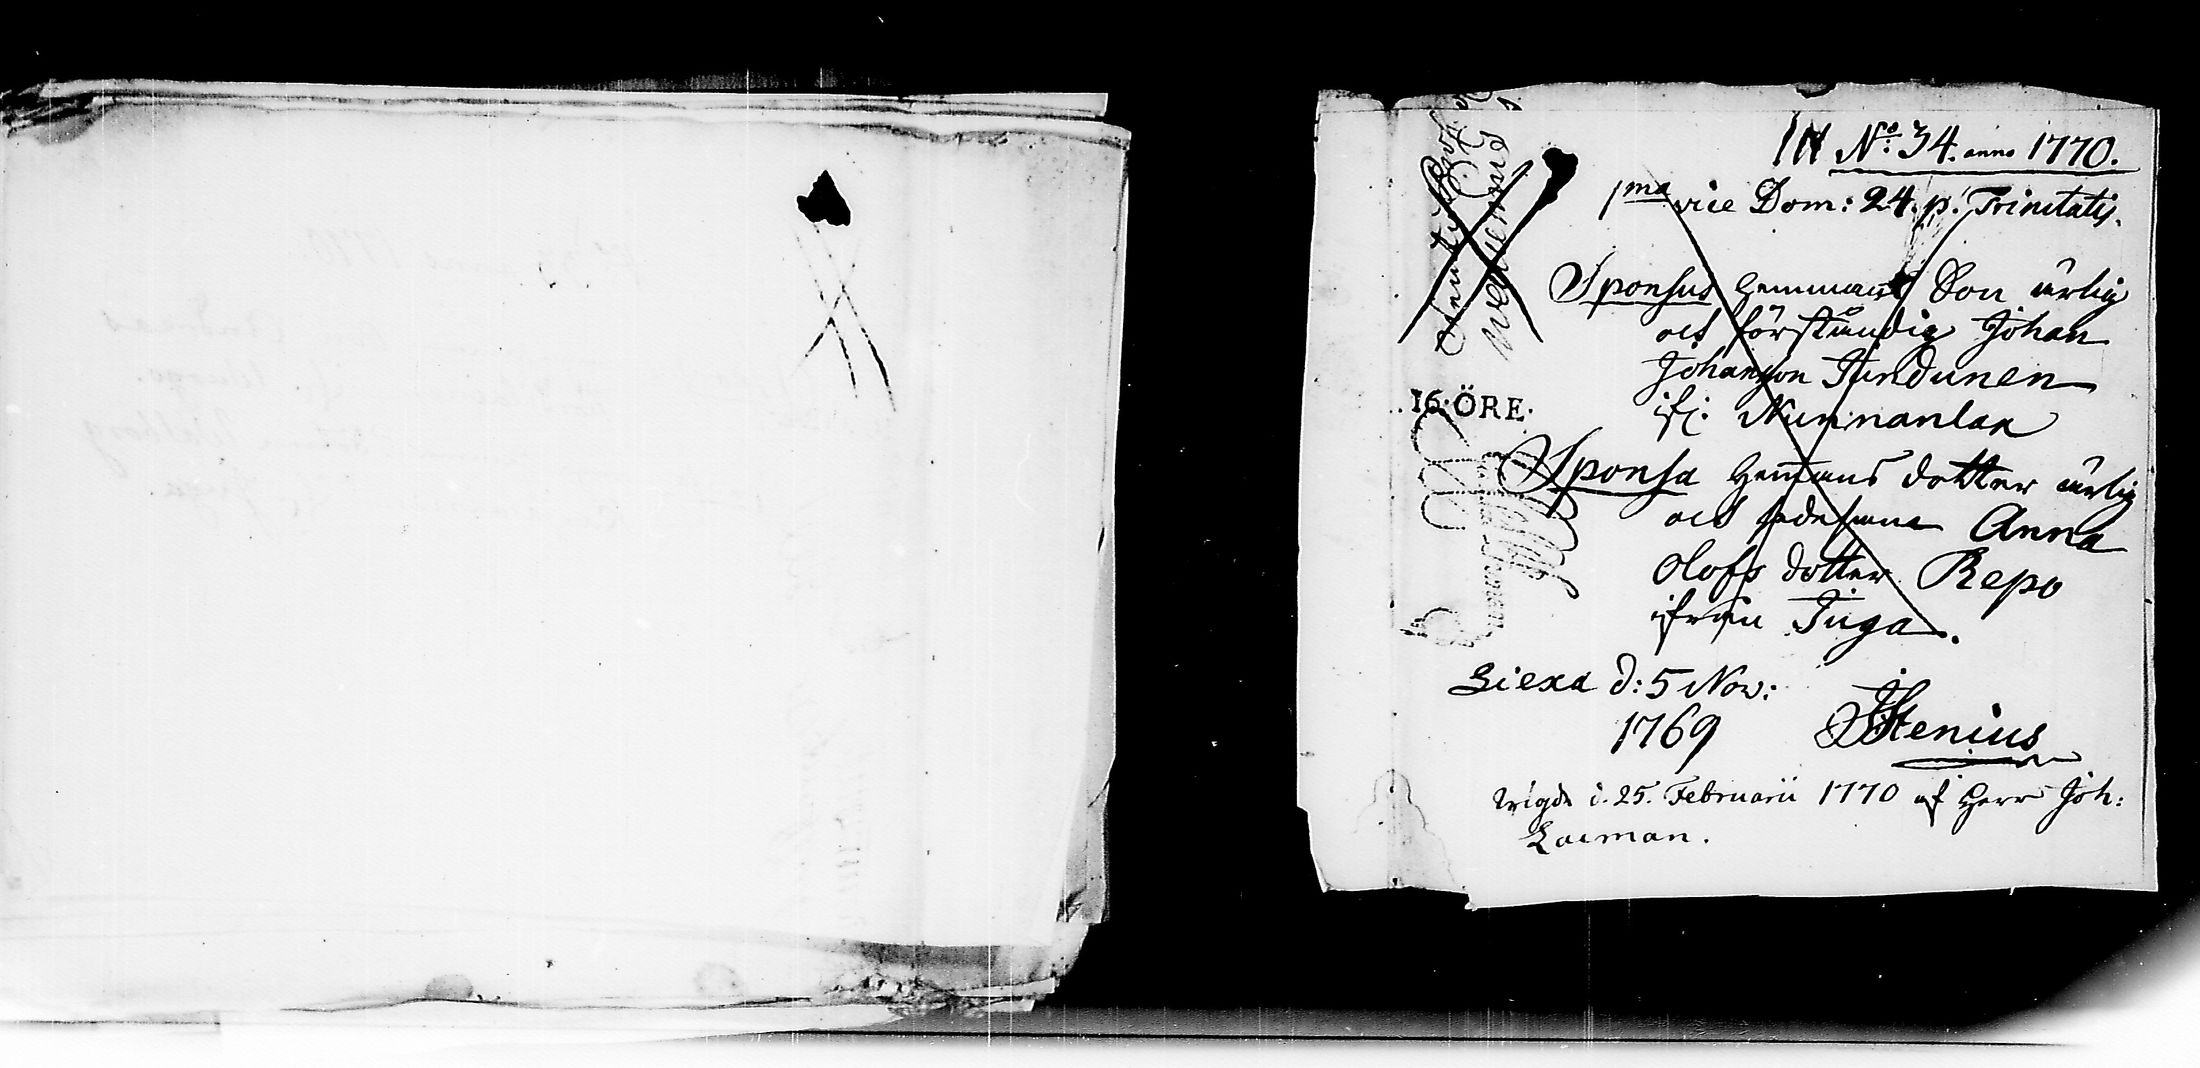 No. 34. anno 1770.
1ma vice Dom: 24. p. Trinitatis.
Sponsus Hemmans Son ärlig
och förståndig Johan
Johansson Turunen
ifr. Nunnanlax
Sponsa Hemans dotter ärlig
och sedesamma Anna
Olofs dotter Repo
ifrån Juga.
16·ÖRE·
Liexa d: 5 Nov:
1769 JStenius
wigde d. 25. Februarii 1770 af Herr Joh:
Lacman.